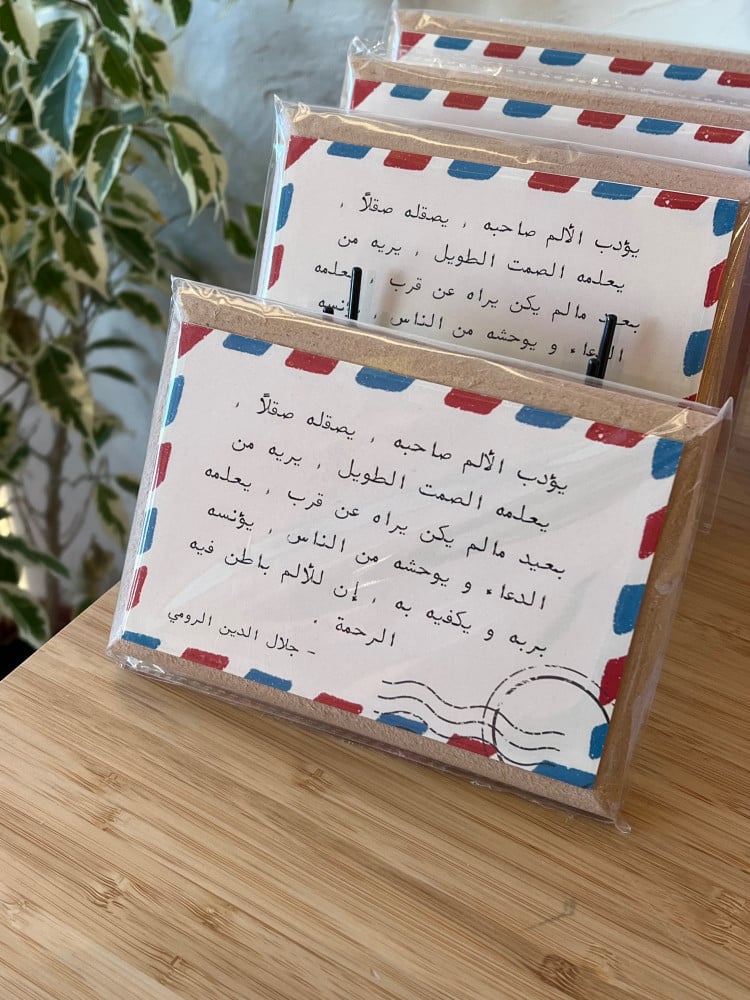 يؤدب الألم صاحبه ، يصقله صقلاً ،
يعلمه الصمت الطويل ، يريه من
بعيد مالم يكن يراه عن قرب ، يعلمه
الدعاء و يوحشه من الناس ، يؤنسه
بربه و يكفيه به ، إن للألم باطن فيه
الرحمة .
- جلال الدين الرومي
يؤدب الألم صاحبه ، يصقله صقلاً ،
يعلمه الصمت الطويل ، يريه من
بعيد مالم يكن يراه عن قرب ، يعلمه
الدعاء و يوحشه من الناس ، يؤنسه